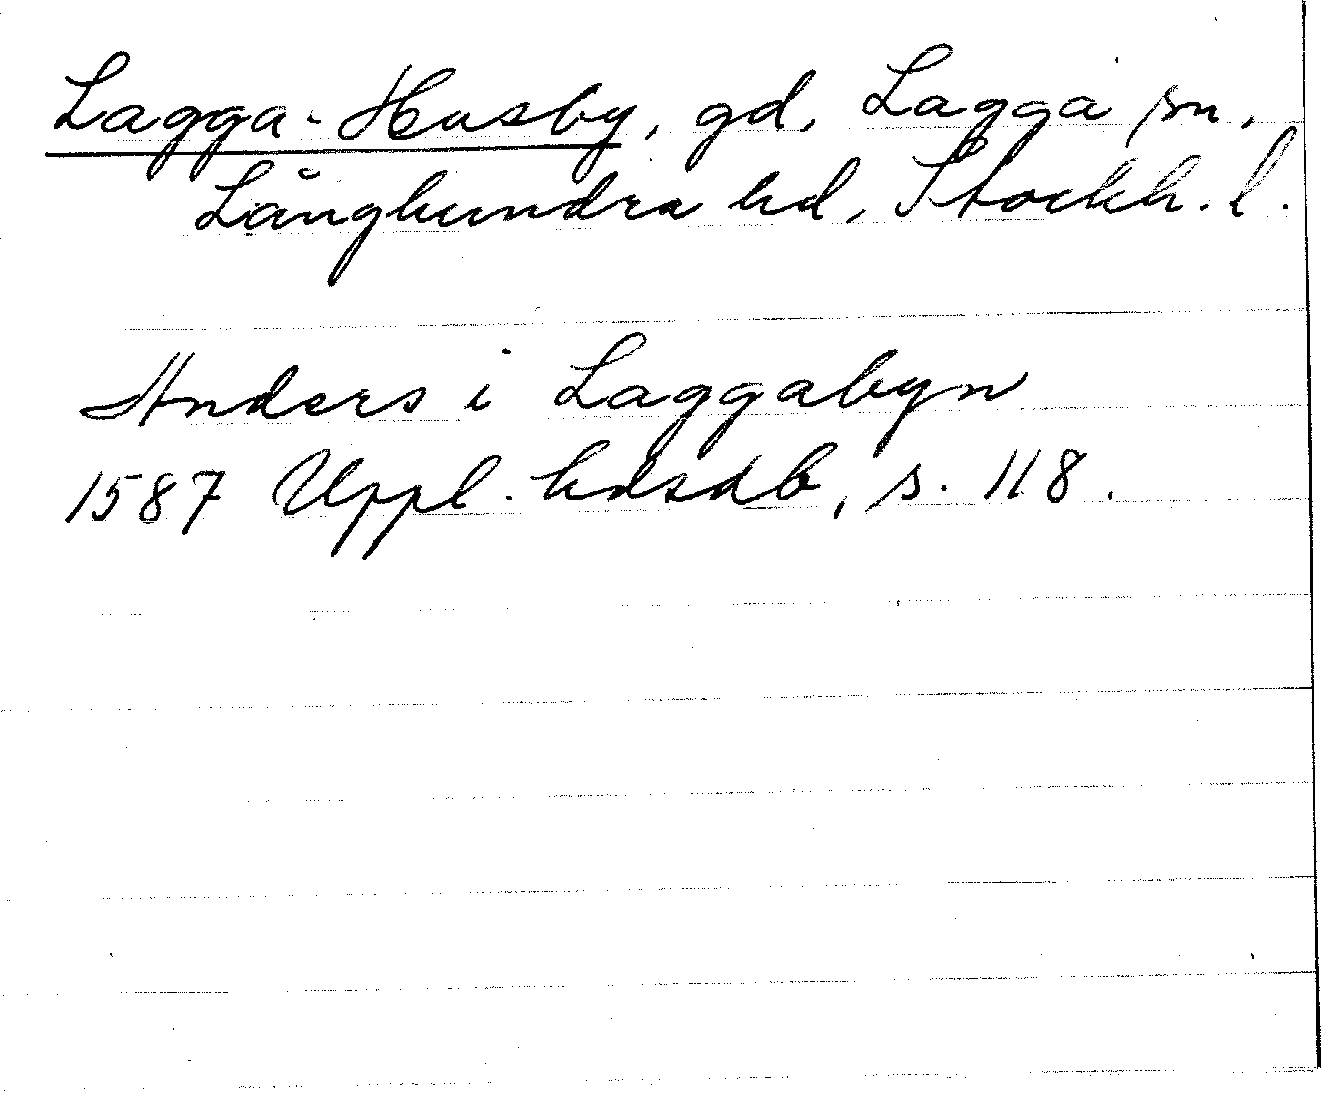 Lagga-Husby, gd, Lagga sn,
Långhundra hd, Stockh. l.
Anders i Laggabyn
1587 Uppl. hdsdb, s. 118.